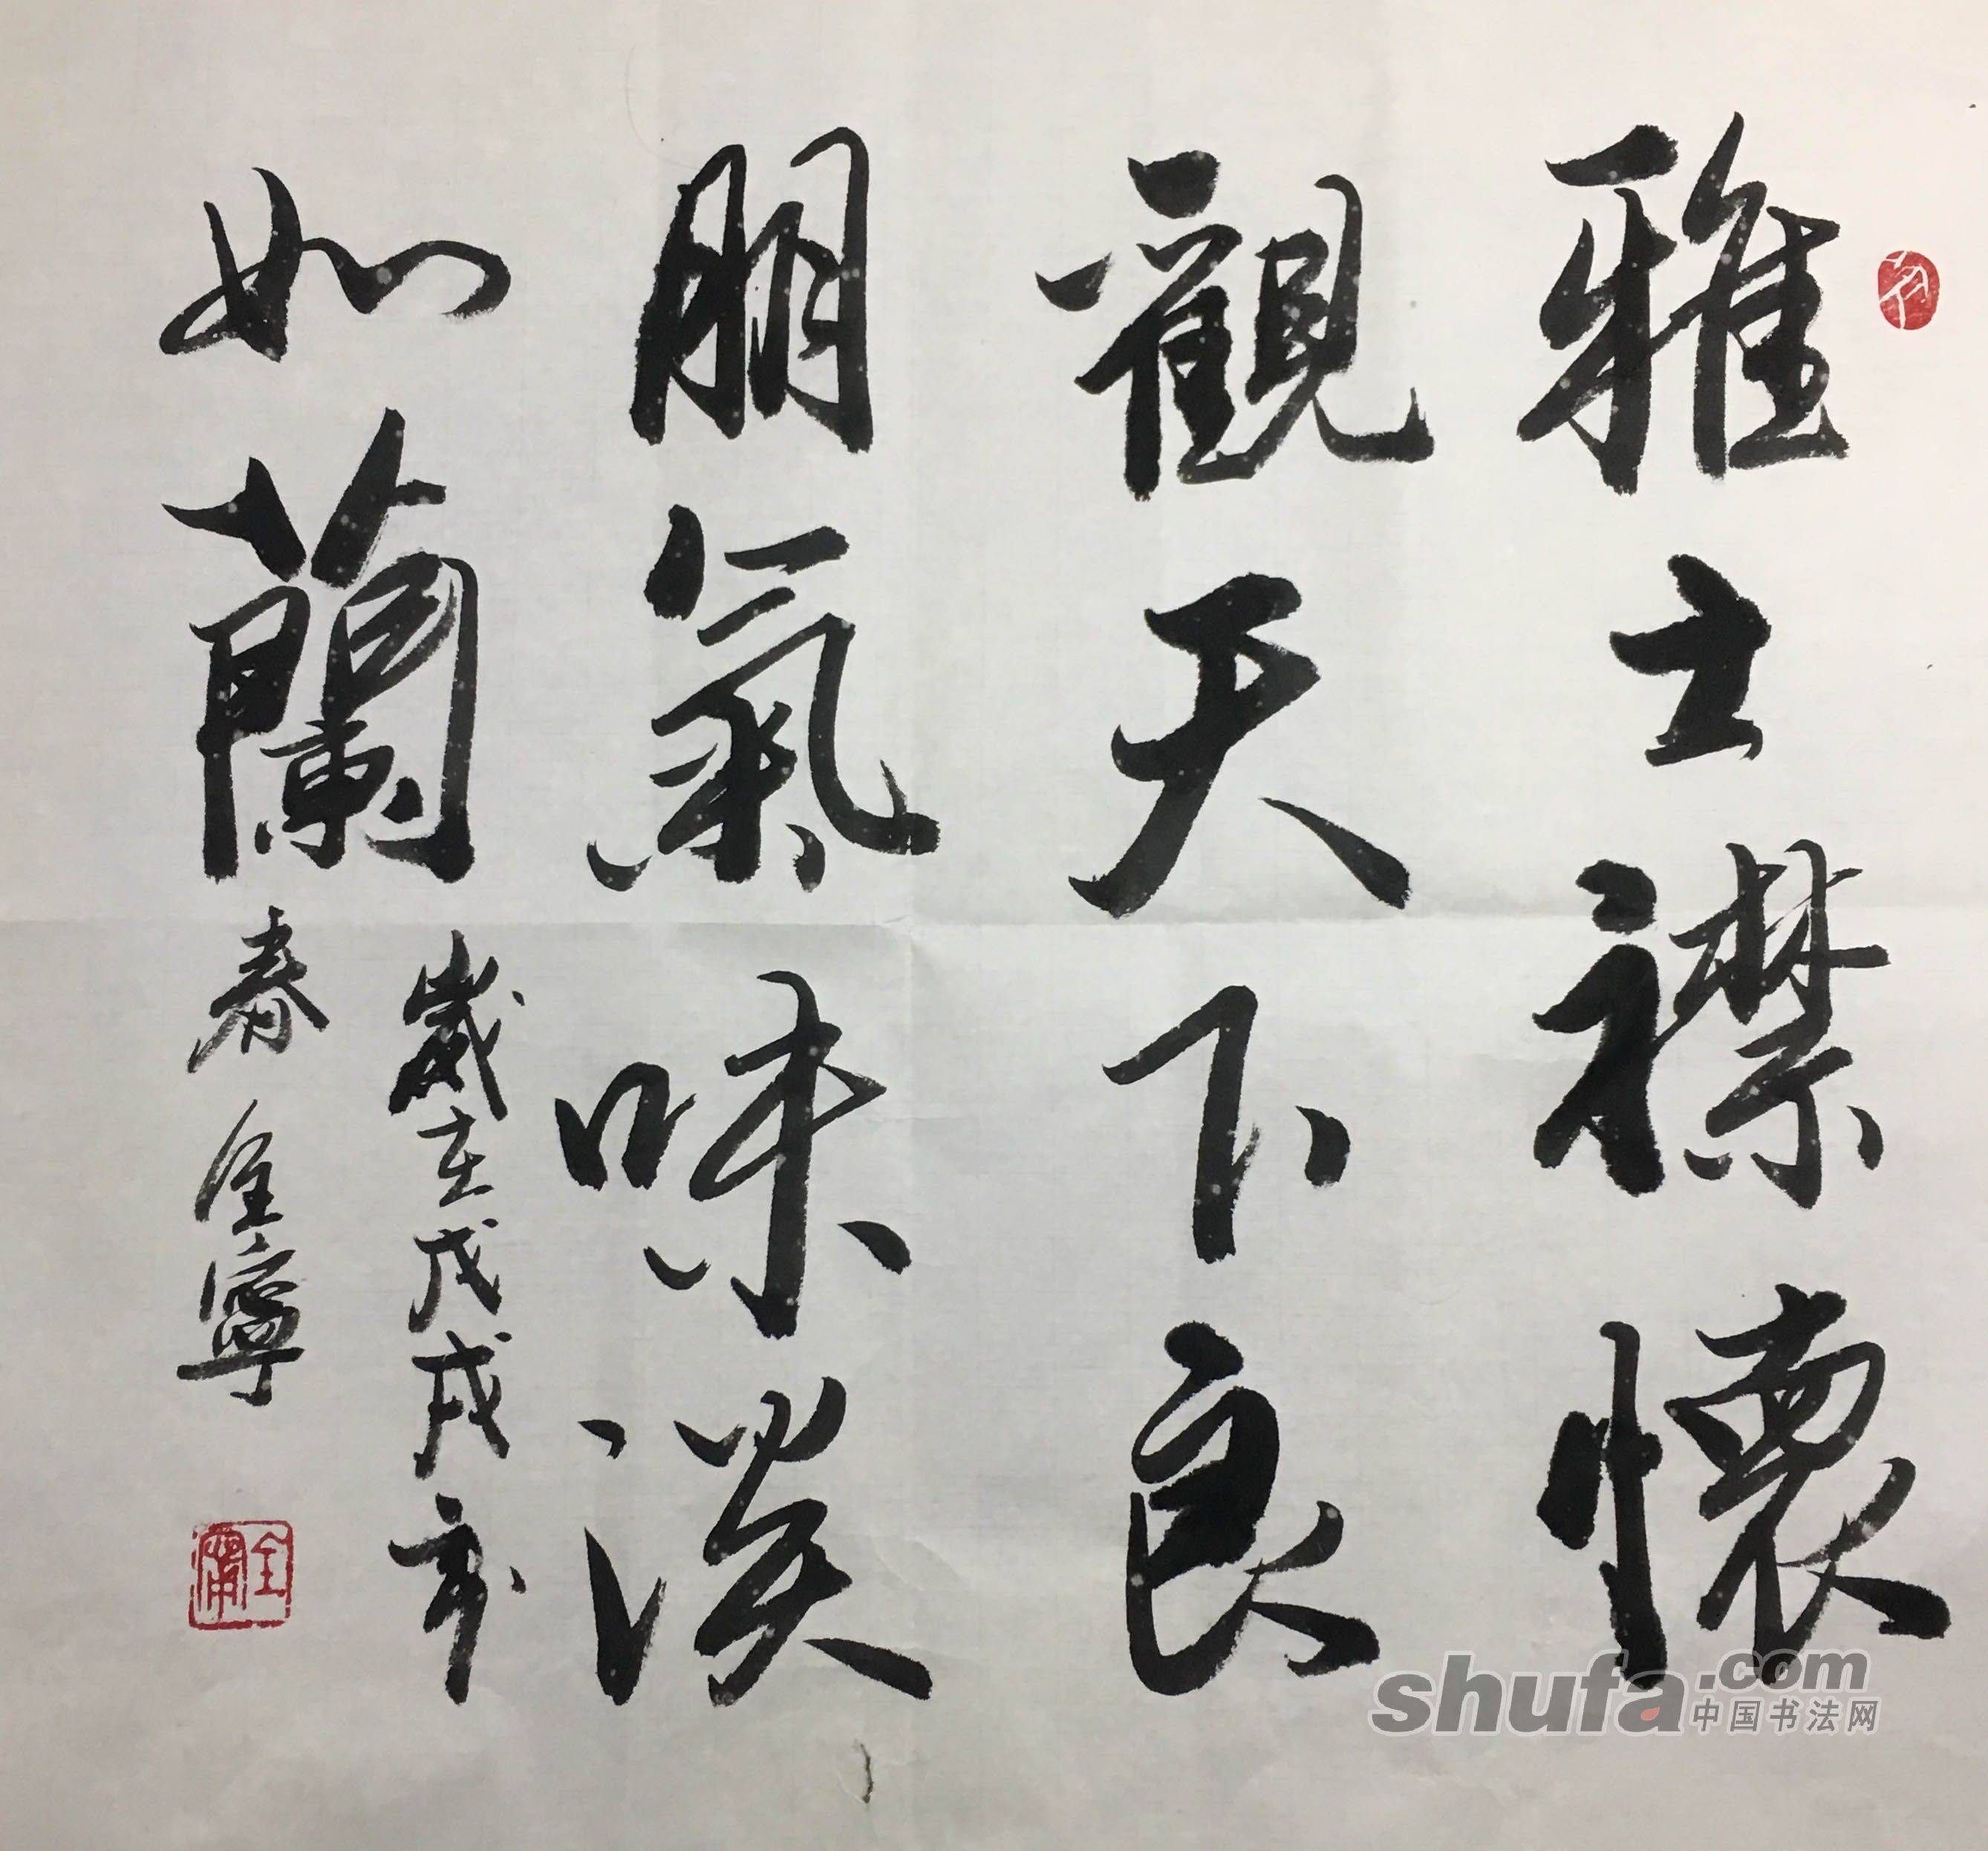 雅士襟懷
觀天下良
朋氣味淡
如蘭
歲在戊戌初
春 全寧
全寧
shufa.com
中国书法网